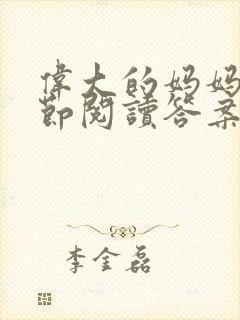 偉大的妈妈
節閱讀答案
李金磊